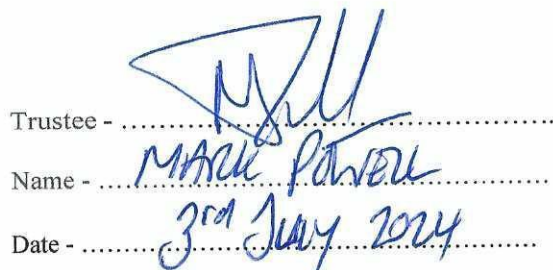 Trustee - ....................
Name - MARK POWELL
Date - 3rd JULY 2024